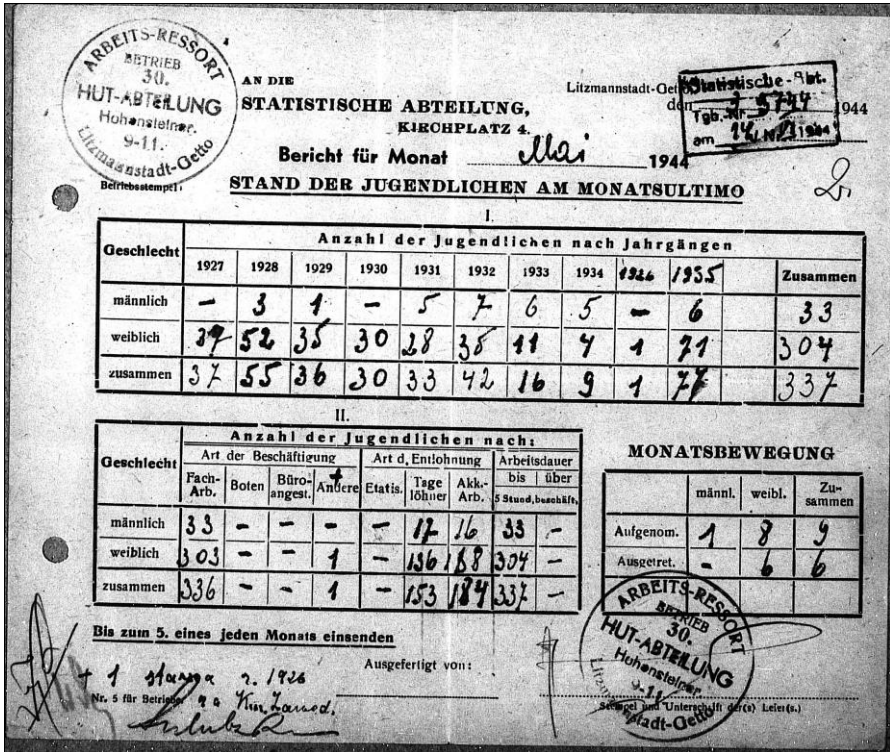 ARBEITS-RESSORT
BETRIEB
30.
HUT-ABTEILUNG
Hohensteiner.
9-11.
Litzmannstadt-Getto
Betriebsstempel.
AN DIE
STATISTISCHE ABTEILUNG,
KIRCHPLATZ 4.
Litzmannstadt-Getto
den 1944
Statistische-Abt.
Tgb.-Nr. 5744
am 14. 1944
Bericht für Monat Mai 1944
STAND DER JUGENDLICHEN AM MONATSULTIMO
I.
Geschlecht Anzahl der Jugendlichen nach Jahrgängen
1927 1928 1929 1930 1931 1932 1933 1934 1926 1935 Zusammen
männlich – 3 1 – 5 7 6 5 – 6 33
weiblich 37 52 35 30 28 35 11 4 1 71 304
zusammen 37 55 36 30 33 42 16 9 1 77 337
II.
Geschlecht Anzahl der Jugendlichen nach:
Art der Beschäftigung Art d. Entlohnung Arbeitsdauer
Fach-Arb. Boten Büro-angest. + Andere Etatis. Tage löhner Akk.-Arb. bis über
5 Stund. beschäft.
männlich 33 – – – – 17 16 33 –
weiblich 303 – – 1 – 136 168 304 –
zusammen 336 – – 1 – 153 184 337 –
MONATSBEWEGUNG
männl. weibl. Zu-sammen
Aufgenom. 1 8 9
Ausgetret. – 6 6
Bis zum 5. eines jeden Monats einsenden
Ausgefertigt von:
+ 1 r. 1926
Nr. 5 für Betriebe
ARBEITS-RESSORT
BETRIEB
30.
HUT-ABTEILUNG
Hohensteiner.
9-11.
Litzmannstadt-Getto
Stempel und Unterschrift der(s) Leiter(s.)